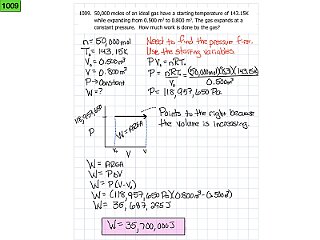 1009
1009. 50,000 moles of an ideal gas have a starting temperature of 143.15K
while expanding from 0.500 m³ to 0.800 m³. The gas expands at a
constant pressure. How much work is done by the gas?
n = 50,000mol
T₀ = 143.15K
V₀ = 0.500m³
V = 0.800m³
P → Constant
W = ?
Need to find the pressure first.
Use the starting variables.
PV₀ = nRT₀
P = nRT₀/V₀ = (50,000mol)(8.31)(143.15K)/0.500m³
P = 118,957,650 Pa
118,957,650
P
W = AREA
V₀ V V
Points to the right because
the volume is increasing.
W = AREA
W = PΔV
W = P(V-V₀)
W = (118,957,650 Pa)(0.800m³-0.500m³)
W = 35,687,295J
W = 35,700,000J